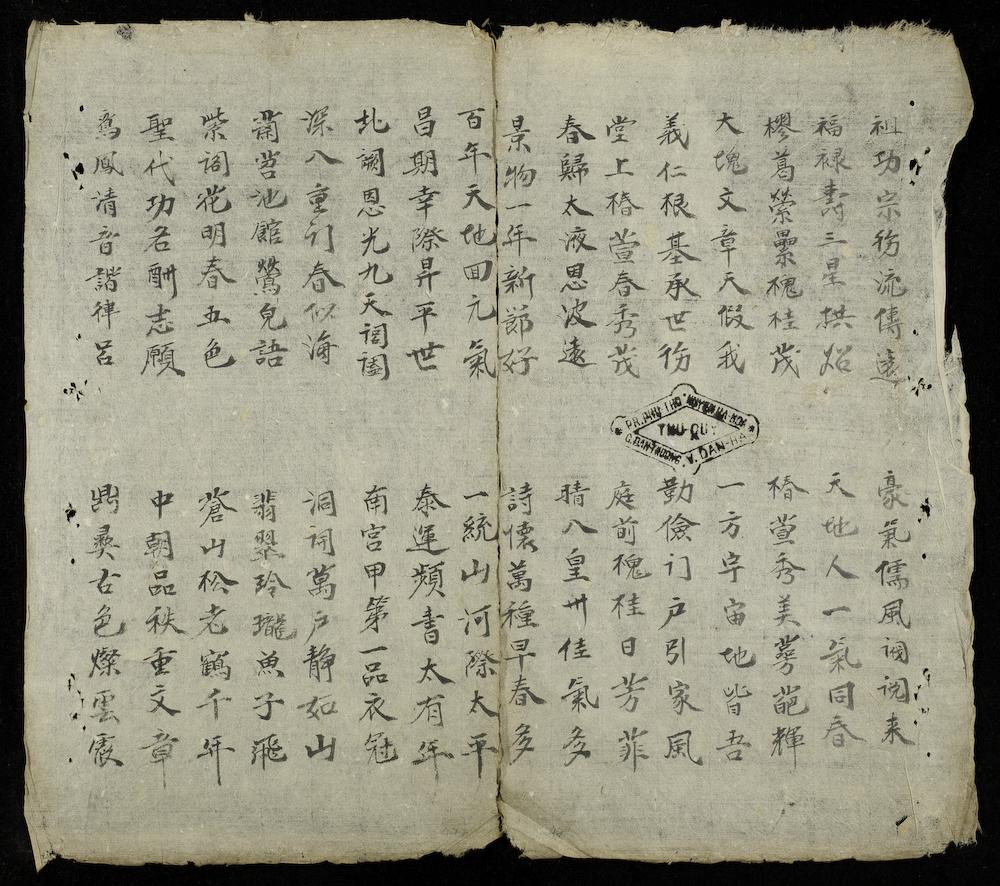 祖功宗彷流傳遠
豪氣儒風調説来
福禄壽三星拱炤
天地人一氣同春
樛葛縈纍槐桂茂
椿萱秀美蕚葩輝
大塊文章天假我
一方宇宙地皆吾
義仁根基承世彷
勤儉门户引家風
堂上椿萱春秀茂
庭前槐桂日芳菲
春歸太液恩波遠
晴入皇州佳氣多
景物一年新節好
詩懷萬種早春多
百年天地囬元氣
一統山河際太平
昌期幸際昇平世
泰運頻書大有年
北闕恩光九天閶闔
南宮甲第一品衣冠
深入重门春似海
洞開萬户静如山
蘭苕池館鶯兒語
翡翠玲瓏魚子飛
紫閣花明春五色
蒼山松老鶴千年
聖代功名酬志願
中朝品秩重文章
鸞鳳清音諧律呂
鼎彝古色燦雲霞
PR.PHU THO HUYEN HA-HOA
THU-QUY
C.DAN-THUONG V.DAN-HA